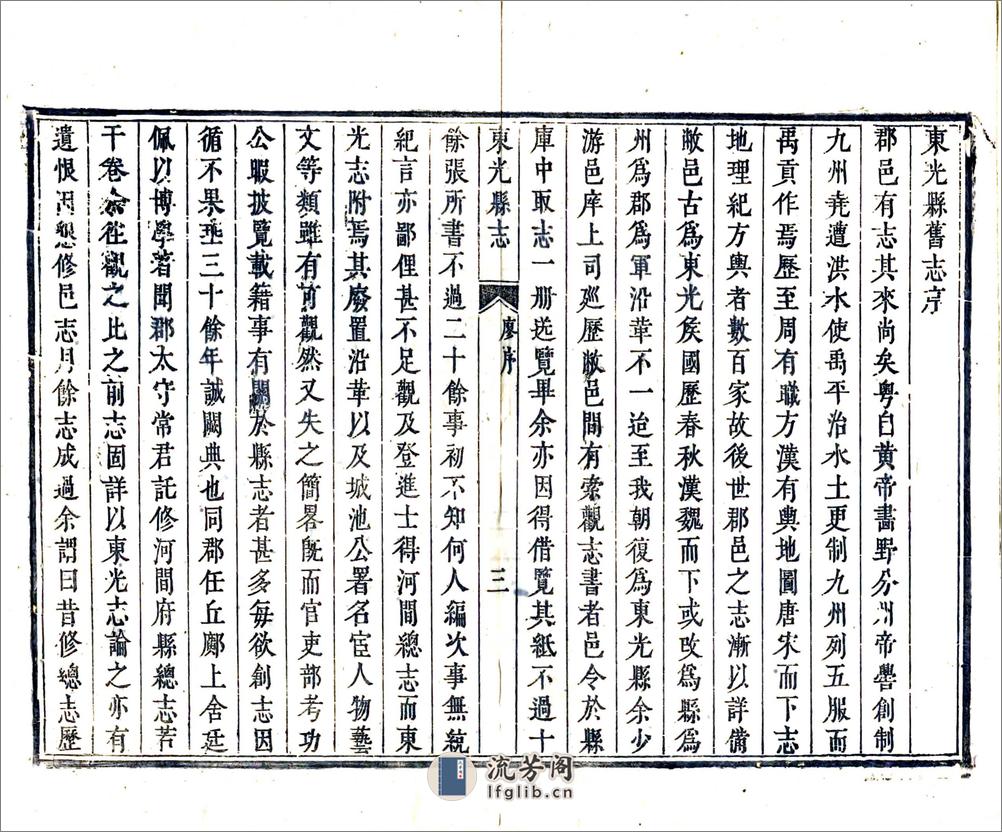 東光縣舊志序
郡邑有志其來尚矣粵自黃帝畫野分州帝嚳創制
九州堯遭洪水使禹平治水土更制九州列五服而
禹貢作焉歷至周有職方漢有輿地圖唐宋而下志
地理紀方輿者數百家故後世郡邑之志漸以詳備
敝邑古爲東光侯國歷春秋漢魏而下或改爲縣爲
州爲郡爲軍沿革不一迨至我朝復爲東光縣余少
游邑庠上司廵歷敝邑間有索觀志書者邑令於縣
庫中取志一册送覽畢余亦因得借覽其紙不過十
東光縣志
廖序
三
餘張所書不過二十餘事初不知何人編次事無統
紀言亦鄙俚甚不足觀及登進士得河間總志而東
光志附焉其廢置沿革以及城池公署名宦人物藝
文等類雖有可觀然又失之簡畧旣而官吏部考功
公暇披覽載籍事有關於縣志者甚多每欲創志因
循不果垂三十餘年誠闕典也同郡任丘鄺上舍廷
佩以博學著聞郡太守常君託修河間府縣總志若
干卷余往觀之比之前志固詳以東光志論之亦有
遺恨因懇修邑志月餘志成過余謂曰昔修總志歷
流芳阁
lfglib.cn